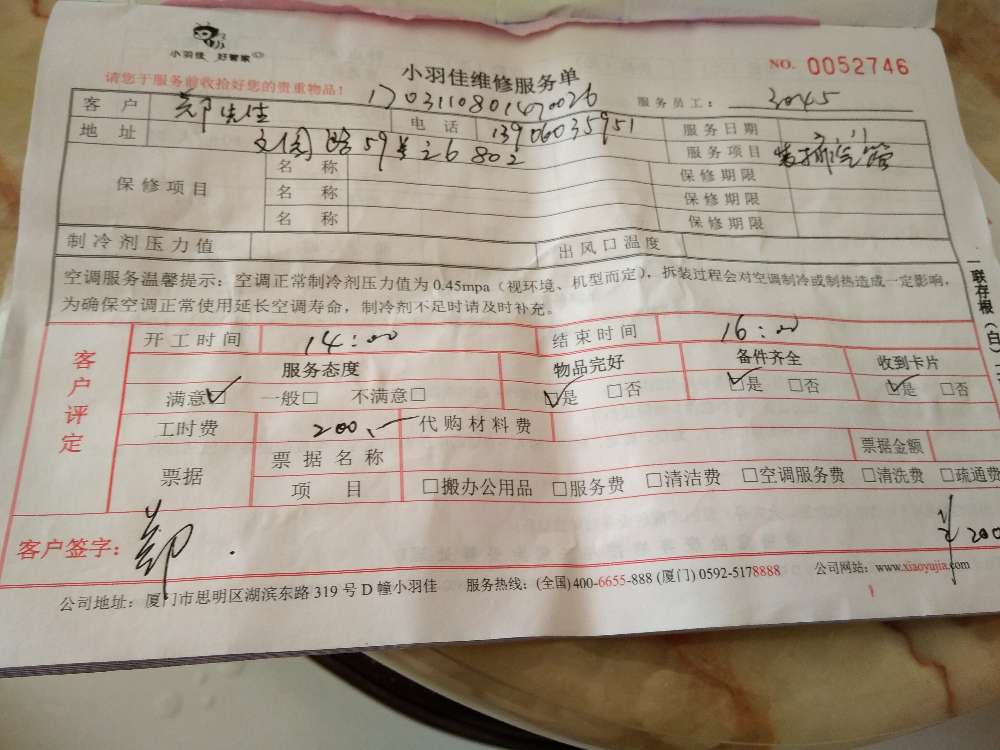 小羽佳 好管家
小羽佳维修服务单 NO. 0052746
请您于服务前收拾好您的贵重物品!
1703110801470026 服务员工: 3045
客户 郑先生 电话 13906035951 服务日期
地址 文园路59号 802 服务项目 装排气管
保修项目 名称 保修期限
名称 保修期限
名称 保修期限
制冷剂压力值 出风口温度
空调服务温馨提示:空调正常制冷剂压力值为0.45mpa(视环境、机型而定),拆装过程会对空调制冷或制热造成一定影响,
为确保空调正常使用延长空调寿命,制冷剂不足时请及时补充。
一联存根(白)
客户评定
开工时间 14:00 结束时间 16:00
服务态度 物品完好 备件齐全 收到卡片
满意☑ 一般□ 不满意□ ☑是 □否 ☑是 □否 ☑是 □否
工时费 200.- 代购材料费
票据 票据名称 票据金额
项目 □搬办公用品 □服务费 □清洁费 □空调服务费 □清洗费 □疏通费
客户签字: 郑 200
公司地址:厦门市思明区湖滨东路319号D幢小羽佳 服务热线:(全国)400-6655-888 (厦门) 0592-5178888 公司网站:www.xiaoyujia.com